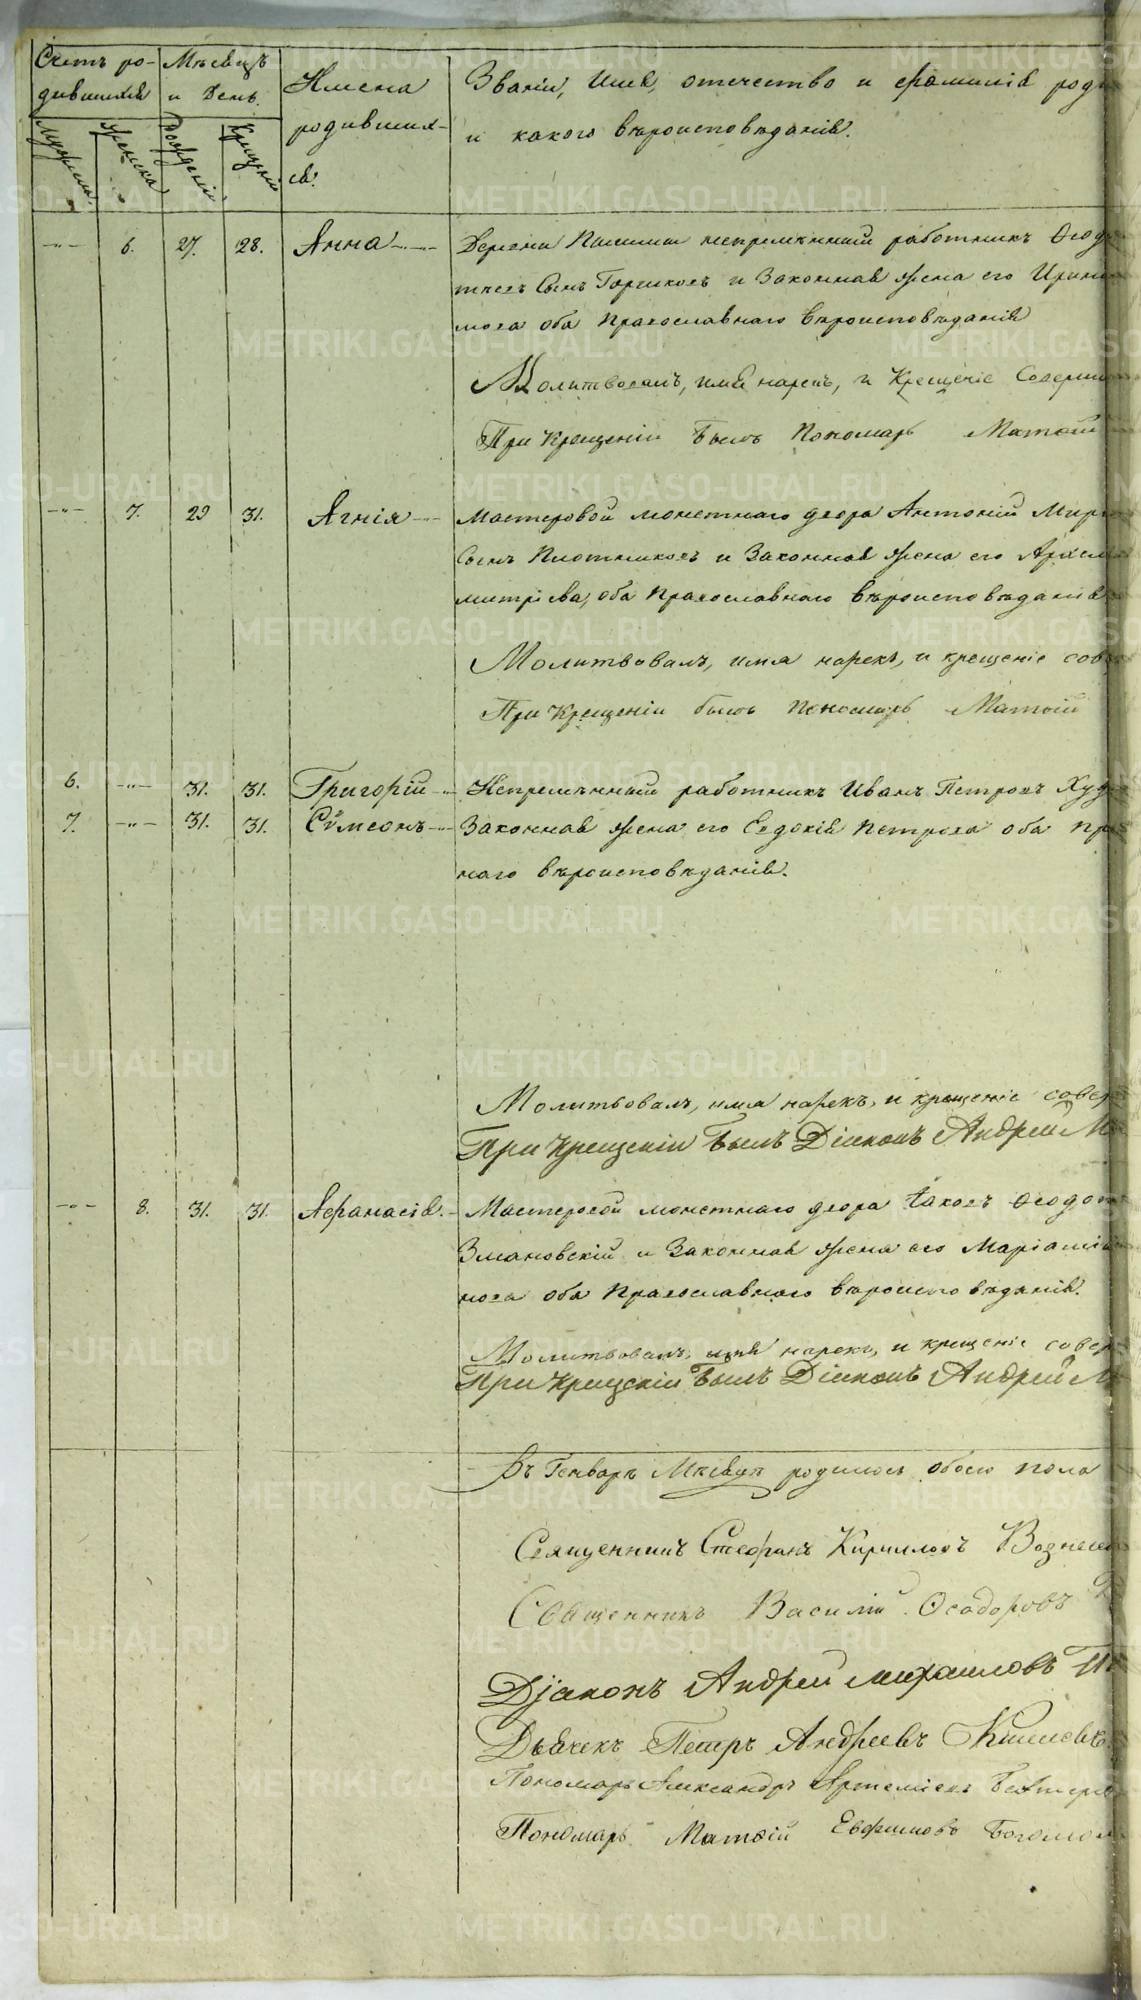 Счетъ ро-
дившихся
Мѣсяцъ
и День.
Имена
родивших-
ся.
Званіи, Имя, отечество и фамилія роди
и какого вѣроисповѣданія.
Мужеска.
Женска
Рожденій
Крещеній
—"— 6. 27. 28. Анна Деревни непремѣнный работникъ Ѳеод
сынъ Горшковъ и Законная жена его Ирин
мова оба Православнаго вѣроисповѣданія
Молитвовалъ, имя нарекъ, и Крещеніе Соверши
При Крещеніи былъ Пономарь Матѳій
—"— 7. 29 31. Агнія Мастеровой монетнаго двора Антоній Мир
Сынъ Плотниковъ и Законная жена его
митріева, оба Православнаго вѣроисповѣданія
Молитвовалъ, имя нарекъ, и крещеніе сов
При Крещеніи былъ Пономарь Матѳій
6. —"— 31. 31. Григорій Непремѣнный работникъ Иванъ Петровъ Худ
7. —"— 31. 31. Сѵмеонъ Законная жена его Евдокія Петрова оба Пр
наго вѣроисповѣданія.
Молитвовалъ, имя нарекъ, и крещеніе совер
При Крещеніи былъ Діяконъ Андрей М
—"— 8. 31. 31. Афанасія. Мастеровой монетнаго двора Іаковъ Ѳеодот
Змановскій и Законная жена его Маріа
нова оба Православнаго вѣроисповѣданія.
Молитвовалъ, имя нарекъ, и крещеніе совер
При Крещеніи былъ Діяконъ Андрей М
Въ Генварѣ Мѣсяцѣ родилось обоего пола
Священникъ Стефанъ Кирилловъ Вознесен
Священникъ Василій Ѳеодоровъ
Діаконъ Андрей Михаиловъ
Дьячекъ Петръ Андреевъ
Пономарь Александръ Артеміевъ
Пономарь Матѳій Евфимовъ Богомол
METRIKI.GASO-URAL.RU